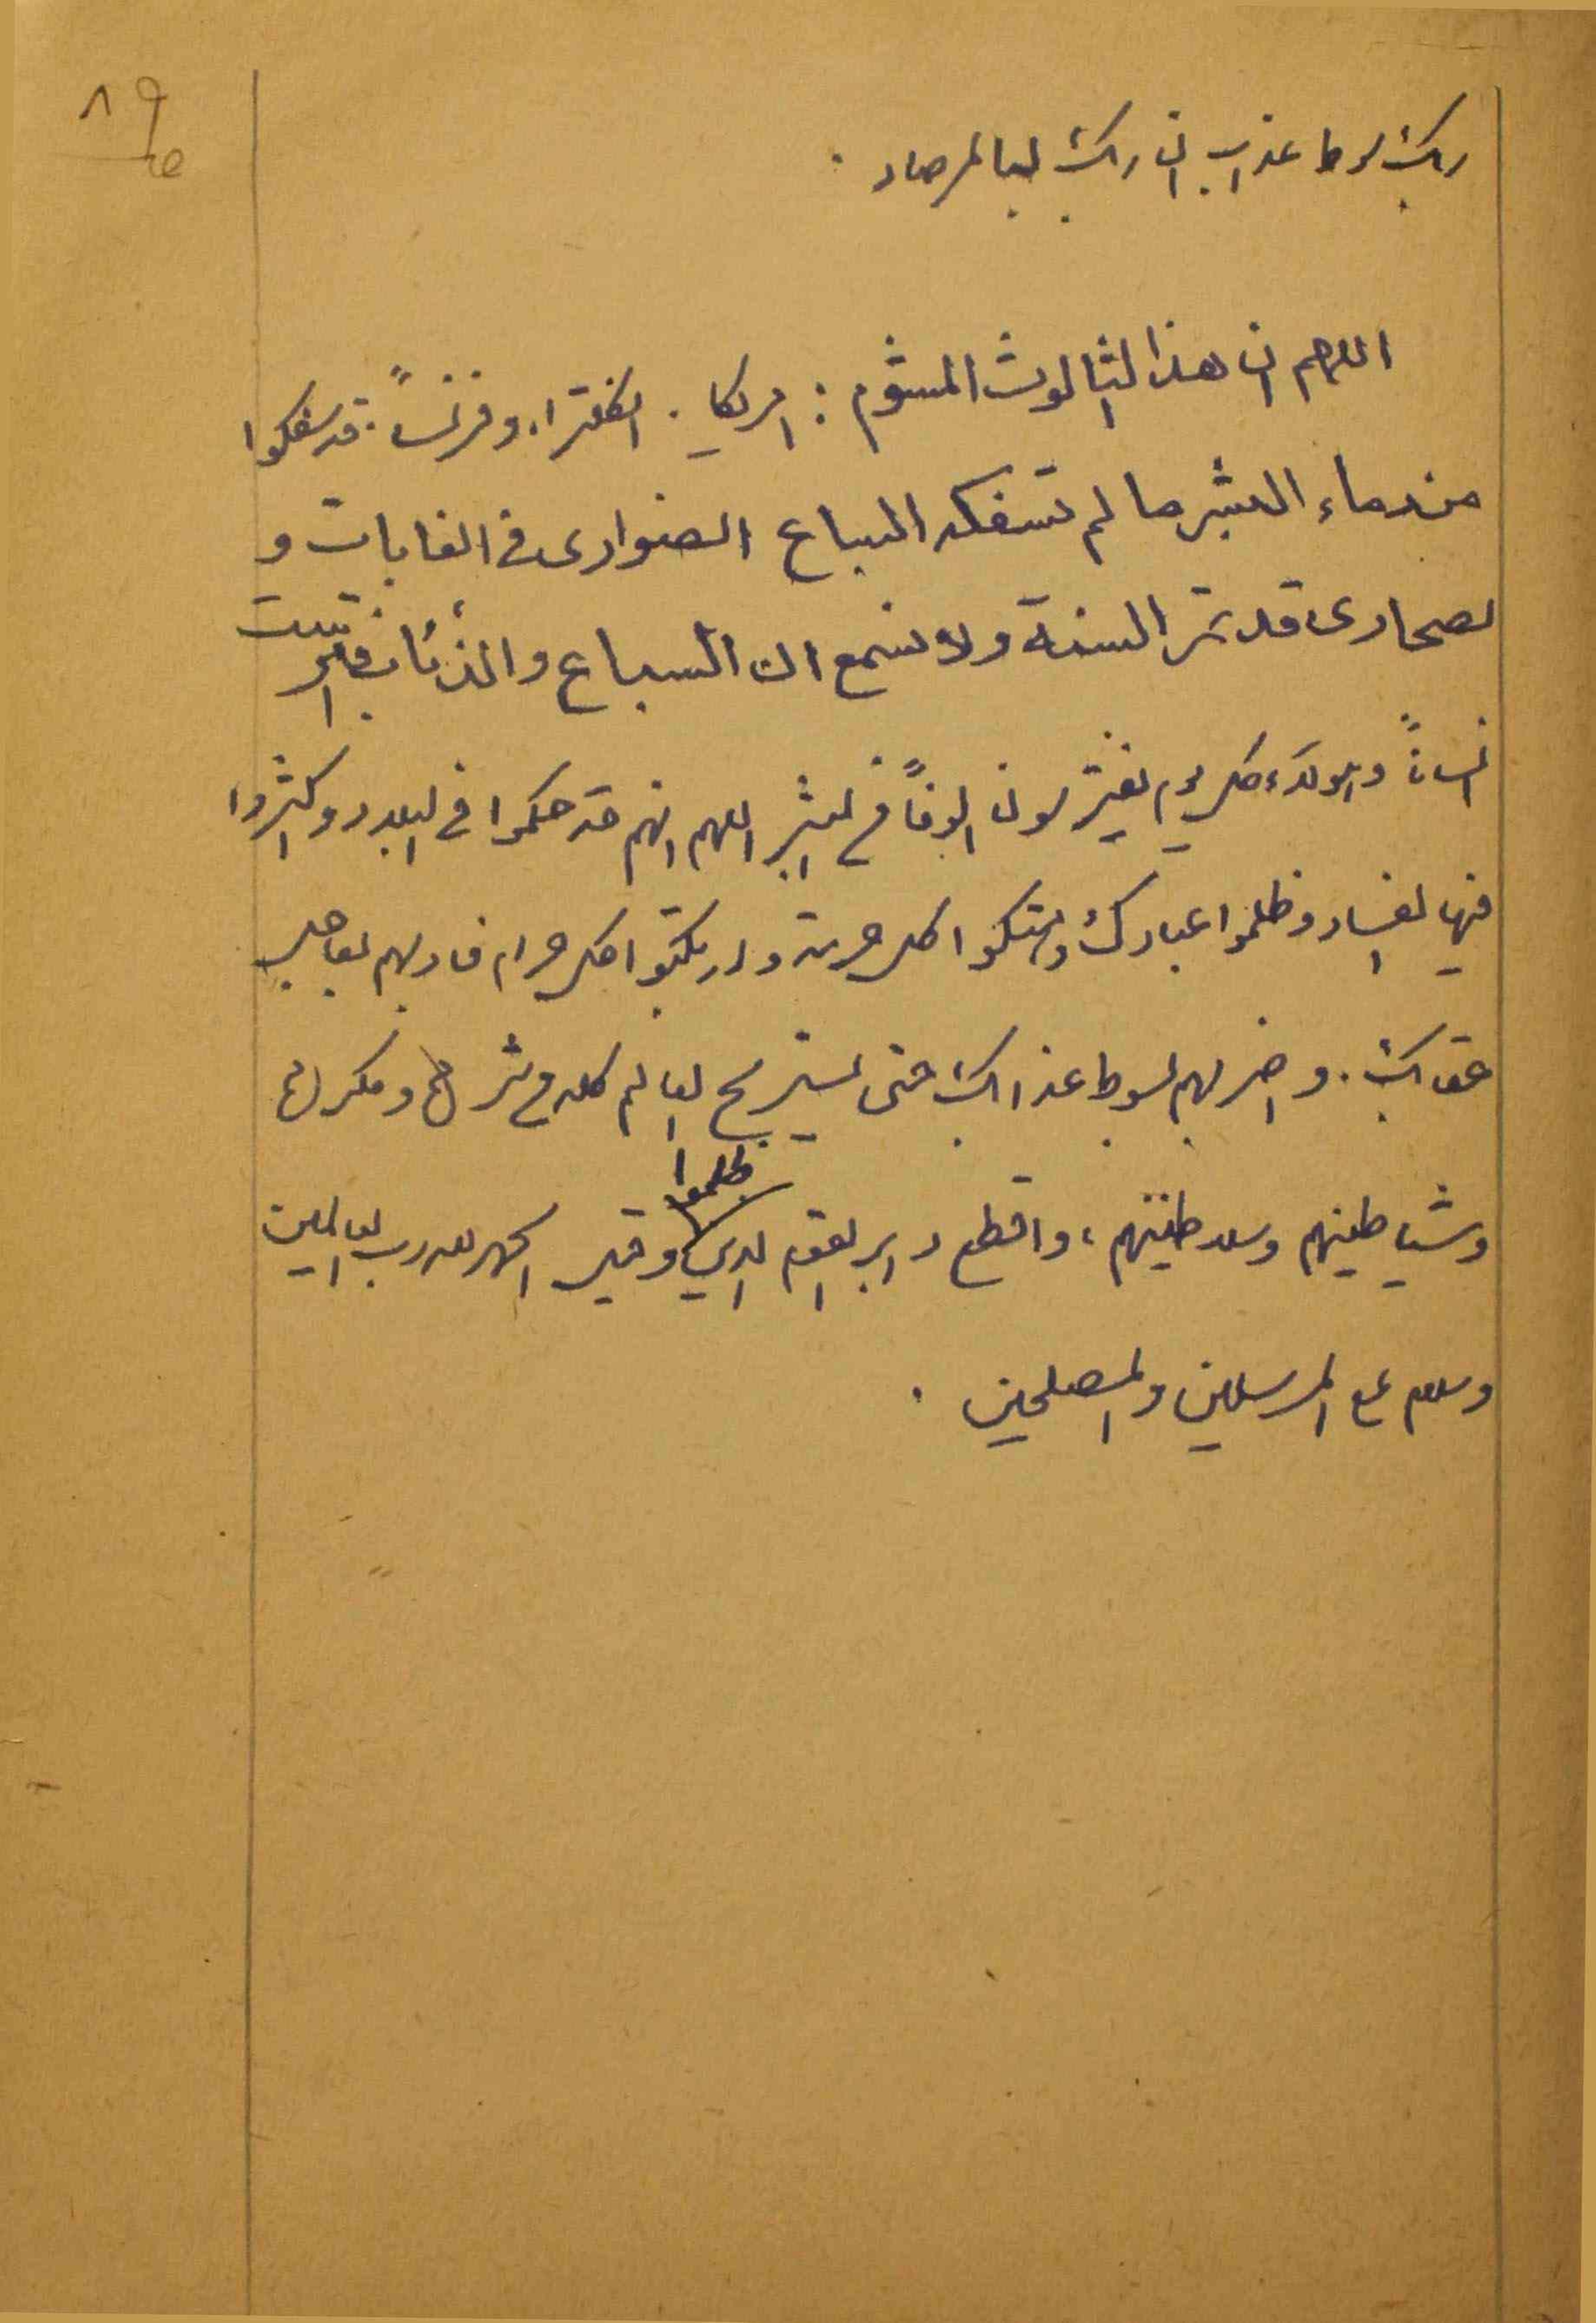 ربك سوط عذاب ان ربك لبا لمرصاد .
اللهم ان هذا الثالوث المشؤم : امريكا . انكلترا، وفرنساً. قد سفكوا
من دماء البشر ما لم تسفكه السباع الضوارى فى الغابات و
لصحارى قد تمر السنة ولا نسمع ان السباع والذئاب افترست
انساناً وهؤلاء كل يوم يفترسون الوفاً من البشر اللهم انهم قد حكموا فى البلاد و اكثروا
فيها الفساد وظلموا عبادك وهتكوا كل حرمة و ارتكبوا كل حرام فخذ بهم بعاجل
عقابك . و اضربهم بسوط عذابك حتى يستريح العالم كله من شرهم ومكرهم
وشياطينهم وسلاطينهم ، واقطع دابر القوم الذين ظلموا وقيل الحمد لله رب العالمين
وسلام على المرسلين والمصلحين .